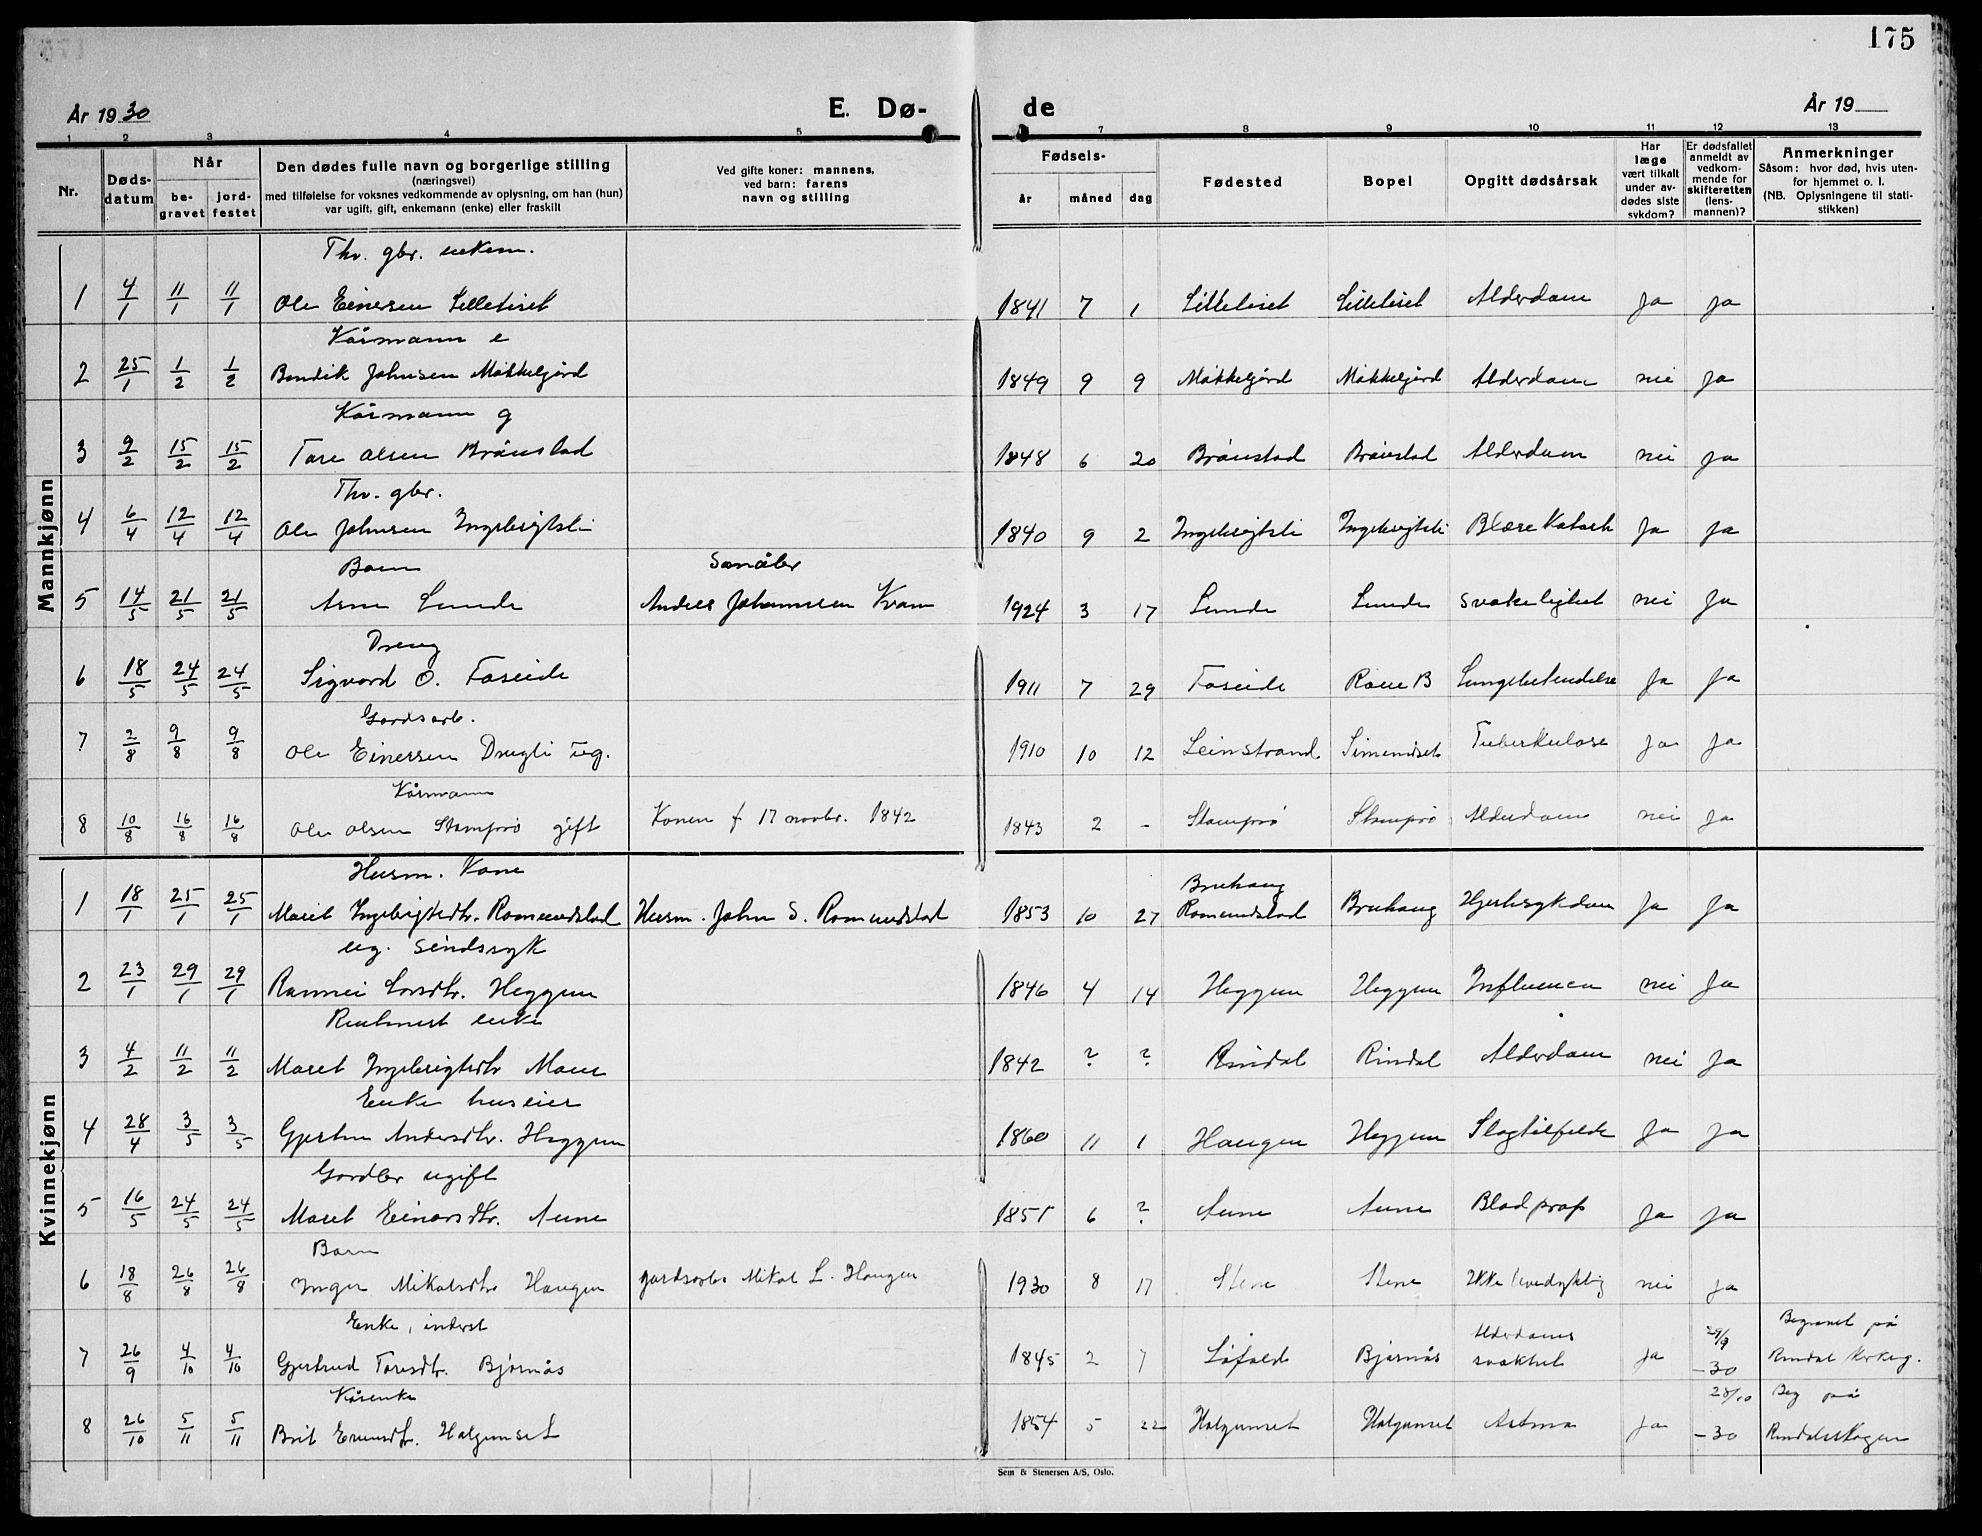 175
År 1930
E. Dø-
de
År 19
1 2 3 4 5 7 8 9 10 11 12 13
Nr.
Døds-
datum
Når
be-
gravet
jord-
festet
Den dødes fulle navn og borgerlige stilling
(næringsvei)
med tilføielse for voksnes vedkommende av oplysning, om han (hun)
var ugift, gift, enkemann (enke) eller fraskilt
Ved gifte koner: mannens,
ved barn: farens
navn og stilling
Fødsels-
år måned dag
Fødested
Bopel
Opgitt dødsårsak
Har
læge
vært tilkalt
under av-
dødes siste
sykdom?
Er dødsfallet
anmeldt av
vedkom-
mende for
skifteretten
(lens-
mannen)?
Anmerkninger
Såsom: hvor død, hvis uten-
for hjemmet o. l.
(NB. Oplysningene til stati-
stikken)
Mannkjønn
Thv. gbr. enkem.
1 4/1 11/1 11/1 Ole Einersen Lilletiset 1841 7 1 Lilletiset Lilletiset Alderdom Ja Ja
Kårmann e
2 25/1 1/2 1/2 Bendik Johnsen Møkkelgård 1849 9 9 Møkkelgård Møkkelgård Alderdom nei Ja
Kårmann g
3 9/2 15/2 15/2 Tore Olsen Brønstad 1848 6 20 Brønstad Brønstad Alderdom nei Ja
Thv. gbr.
4 6/4 12/4 12/4 Ole Johnsen Ingebrigtsli 1840 9 2 Ingebrigtsli Ingebrigtsli Blære Katarh Ja Ja
Barn
5 14/5 21/5 21/5 Arne Lunde Andres Johannesen Kvam 1924 3 17 Lunde Lunde svakelighet nei Ja
Dreng
6 18/5 24/5 24/5 Sigvord O. Foseide 1911 7 29 Foseide Lungebetendelse Ja Ja
Gardsarb.
7 2/8 9/8 9/8 Ole Einersen Drugli ug. 1910 10 12 Leinstrand Simendset Tuberkulose Ja Ja
Kårmann
8 10/8 16/8 16/8 Ole Olsen Stomprø gift Konen f 17 novbr. 1842 1843 2 - Stomprø Stomprø Alderdom nei Ja
Kvinnekjønn
Husm. Kone
Bruhaug
1 18/1 25/1 25/1 Marit Ingebrigtsdtr. Romundstad Husm. John S. Romundstad 1853 10 27 Romundstad Bruhaug Hjertesykdom Ja Ja
ug. sindssyk
2 23/1 29/1 29/1 Rannei Larsdtr. Heggem 1846 4 14 Heggem Heggem Influensa nei Ja
enke
3 4/2 11/2 11/2 Maret Ingebrigtsdtr Moen 1842 ? ? Rindal Rindal Alderdom nei Ja
Enke huseier
4 28/4 3/5 3/5 Gjertru Andersdtr. Heggem 1860 11 1 Haugen Heggem Slagtilfelde Ja Ja
Gardbr ugift
5 16/5 24/5 24/5 Maret Einarsdtr. Aune 1851 6 ? Aune Aune Blodprop Ja Ja
Barn
6 18/8 26/8 26/8 Inger Mikalsdtr Haugen gardsarb. Mikal L. Haugen 1930 8 17 Stene Stene Ikke levedyktig nei Ja
Enke, inderst
Alderdoms 29/9 Begravet på
7 26/9 4/10 4/10 Gjertrud Toresdtr. Bjørnås 1845 2 7 Løfald Bjørnås svakhet Ja -30 Rindal kirkeg.
Kårenke
28/10 Beg på
8 26/10 5/11 5/11 Brit Ensdtr. Halgunset 1854 5 22 Halgunset Halgunset Astma Ja -30 Rindalsskogen
Sem & Stenersen A/S, Oslo.